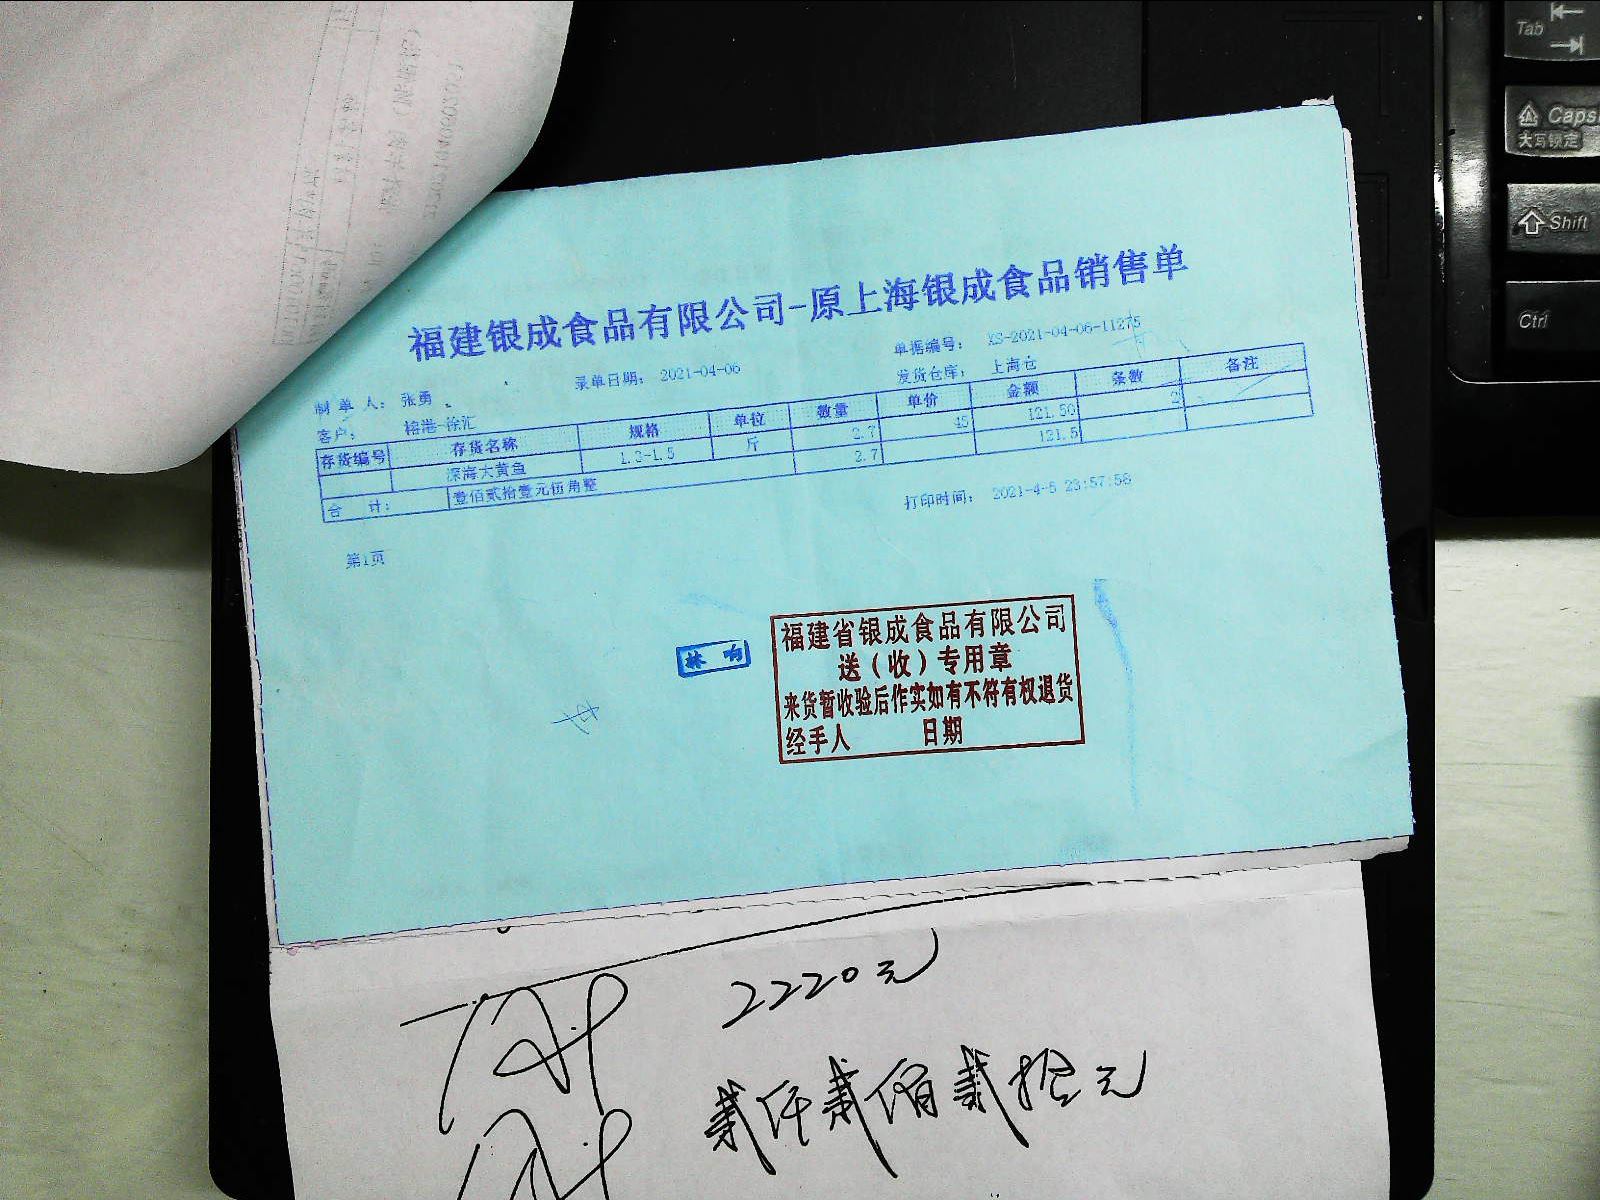 福建银成食品有限公司-原上海银成食品销售单
单据编号： XS-2021-04-06-11275
录单日期： 2021-04-06
发货仓库： 上海仓
制 单 人： 张勇
客户： 榕港-徐汇
存货编号 存货名称 规格 单位 数量 单价 金额 条数 备注
深海大黄鱼 1.3-1.5 斤 2.7 45 121.50 2
合 计： 壹佰贰拾壹元伍角整 2.7 121.5
打印时间： 2021-4-5 23:57:58
第1页
林 响
福建省银成食品有限公司
送（收）专用章
来货暂收验后作实如有不符有权退货
经手人 日期
2220元
贰仟贰佰贰拾元
Tab
Caps
大写锁定
Shift
Ctrl